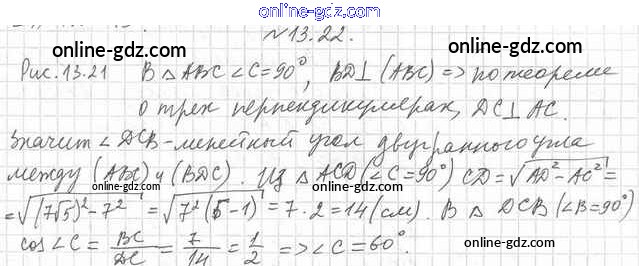 online-gdz.com
№13.22.
online-gdz.com online-gdz.com
Рис. 13.21 В △ABC ∠C=90°, BD⊥(ABC) => по теореме
о трех перпендикулярах, DC⊥AC.
online-gdz.com
Значит ∠DCB - линейный угол двугранного угла
online-gdz.com
между (ABC) и (BDC). Из △ACD (∠C=90°) CD=√AD²-AC²=
online-gdz.com online-gdz.com
=√(7√5)²-7² = √7²(5-1) = 7·2=14(см). В △DCB (∠B=90°)
cos∠C = BC/DC = 7/14 = 1/2 => ∠C=60°.
online-gdz.com
online-gdz.com